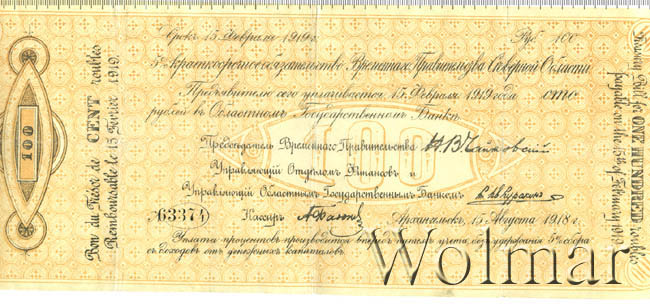 Срокъ 15 Февраля 1919 г. Руб. 100
5% краткосрочное обязательство Временнаго Правительства Сѣверной Области
Предъявителю сего уплачивается 15 Февраля 1919 года сто
рублей въ Областномъ Государственномъ Банкѣ.
100
Предсѣдатель Временнаго Правительства Н. В. Чайковскій
Управляющій Отдѣломъ Финансовъ и
Управляющій Областнымъ Государственнымъ Банкомъ
№ 63374 Кассиръ Архангельскъ, 15 Августа 1918 г.
Уплата процентовъ производится впередъ путемъ учета, безъ удержания 5% сбора
съ доходовъ отъ денежныхъ капиталовъ.
100
Bon du Trésor de CENT roubles
Remboursable le 15 Février 1919.
Bill for ONE HUNDRED roubles
payable on the 15th of February 1919.
Wolmar